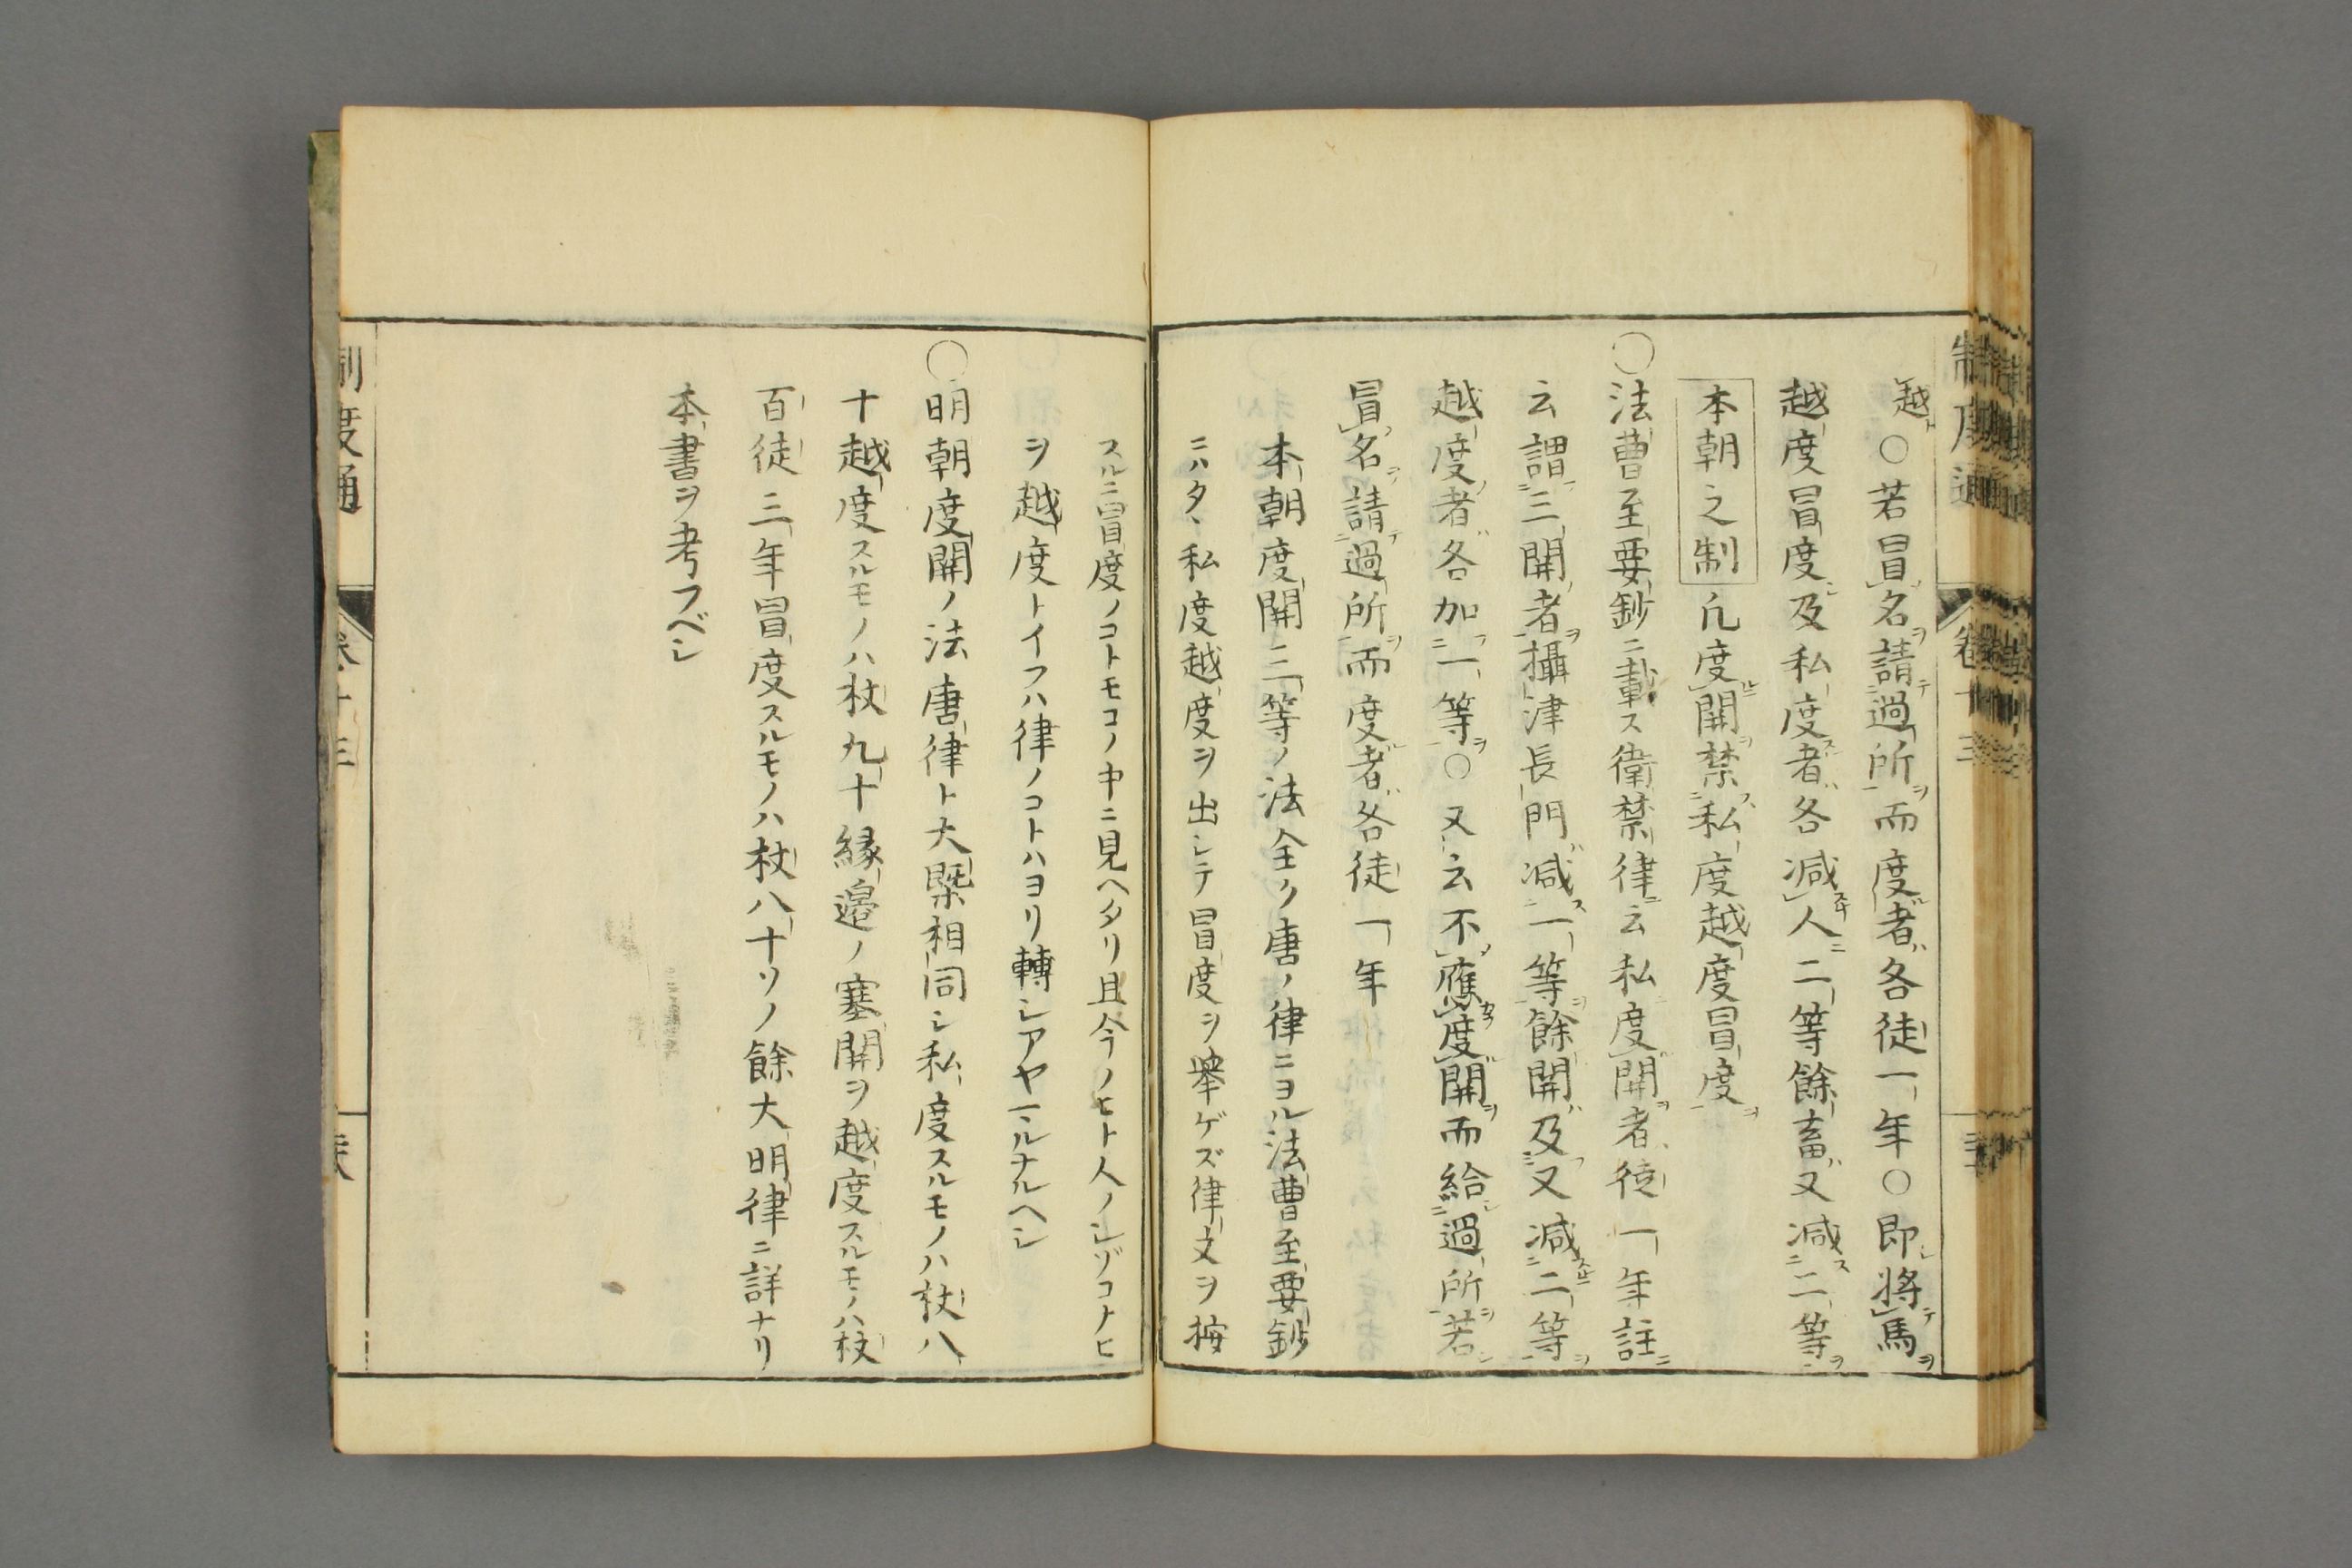 越○若冒名請過所而度者各徒一年○即將馬
越度冒度及私度者各減人二等餘畜又減二等
本朝之制 凡度關禁私度越度冒度
○法曹至要鈔ニ載ス衛禁律云私度關者徒一年註
云謂三關者攝津長門減一等餘關及又減二等
越度者各加一等○又云不應度關而給過所若
冒名請過所而度者各徒一年
本朝度關三等ノ法全ク唐ノ律ニヨル法曹至要鈔
ニハタヽ私度越度ヲ出シテ冒度ヲ擧ゲズ律文ヲ按
スルニ冒度ノコトモコノ中ニ見ヘタリ且今ノヒト人ノシゾコナヒ
ヲ越度トイフハ律ノコトハヨリ轉シアヤマルナルヘシ
○明朝度關ノ法唐律ト大槩相同シ私度スルモノハ杖八
十越度スルモノハ杖九十縁邉ノ塞關ヲ越度スルモノハ杖
百徒三年冒度スルモノハ杖八十ソノ餘大明律ニ詳ナリ
本書ヲ考フベシ
制度通 卷十三